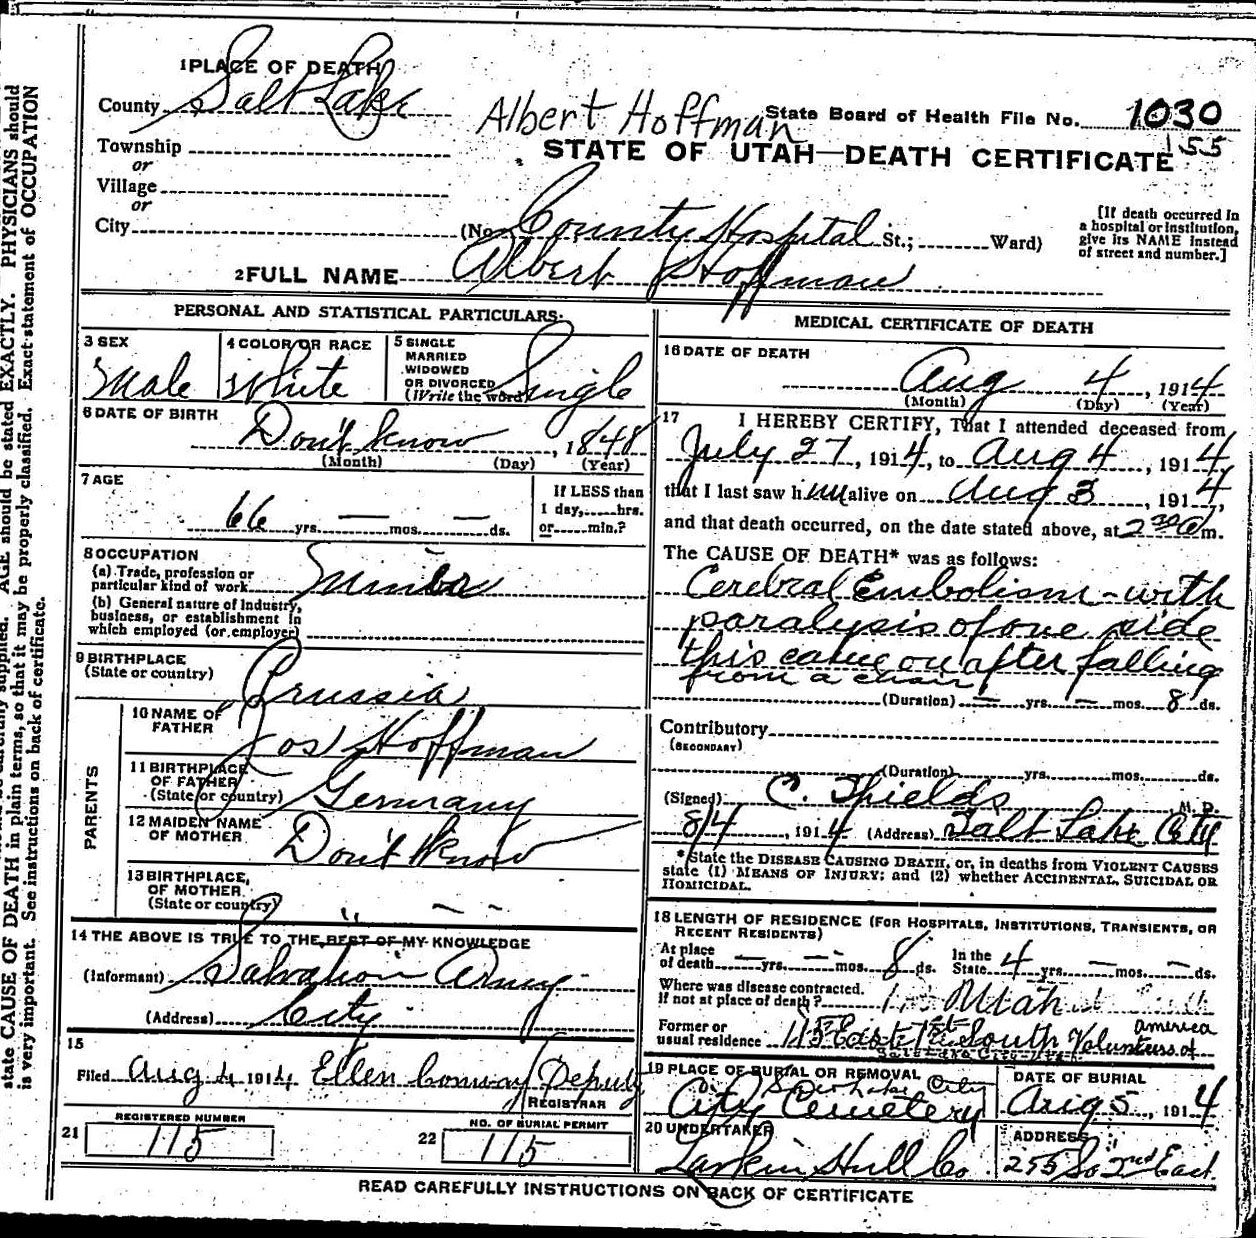 1 PLACE OF DEATH
County Salt Lake
Albert Hoffman
State Board of Health File No. 1030
155
Township
or
Village
or
City
STATE OF UTAH—DEATH CERTIFICATE
(No. County Hospital St.; Ward)
[If death occurred in a hospital or institution, give its NAME instead of street and number.]
2 FULL NAME Albert Hoffman
PERSONAL AND STATISTICAL PARTICULARS.
3 SEX
Male
4 COLOR OR RACE
White
5 SINGLE
MARRIED
WIDOWED
OR DIVORCED
(Write the word)
Single
6 DATE OF BIRTH
Don't know, 1848
(Month) (Day) (Year)
7 AGE
66 yrs. — mos. — ds.
If LESS than
1 day, hrs.
or min.?
8 OCCUPATION
(a) Trade, profession or
particular kind of work
(b) General nature of industry,
business, or establishment in
which employed (or employer)
9 BIRTHPLACE
(State or country)
Prussia
PARENTS
10 NAME OF
FATHER
Jos Hoffman
11 BIRTHPLACE
OF FATHER
(State or country)
Germany
12 MAIDEN NAME
OF MOTHER
Don't Know
13 BIRTHPLACE,
OF MOTHER
(State or country)
" — —
14 THE ABOVE IS TRUE TO THE BEST OF MY KNOWLEDGE
(Informant) Salvation Army
(Address) City
15
Filed Aug 4 1914 Ellen Conway Deputy
REGISTRAR
REGISTERED NUMBER
21 115
NO. OF BURIAL PERMIT
22 115
MEDICAL CERTIFICATE OF DEATH
16 DATE OF DEATH
Aug 4, 1914
(Month) (Day) (Year)
17 I HEREBY CERTIFY, That I attended deceased from
July 27, 1914, to Aug 4, 1914,
that I last saw him alive on Aug 3, 1914,
and that death occurred, on the date stated above, at 2 30 a m.
The CAUSE OF DEATH* was as follows:
Cerebral Embolism - with
paralysis of one side
this came on after falling
from a chair
(Duration) — yrs. — mos. 8 ds.
Contributory
(SECONDARY)
(Duration) yrs. mos. ds.
(Signed) C. Shields M. D.
8/4, 1914 (Address) Salt Lake City
*State the DISEASE CAUSING DEATH, or, in deaths from VIOLENT CAUSES
state (1) MEANS OF INJURY; and (2) whether ACCIDENTAL, SUICIDAL OR
HOMICIDAL.
18 LENGTH OF RESIDENCE (FOR HOSPITALS, INSTITUTIONS, TRANSIENTS, OR
RECENT RESIDENTS)
At place
of death — yrs. — mos. 8 ds.
In the
State 4 yrs. — mos. — ds.
Where was disease contracted.
If not at place of death? Utah
Former or
usual residence 115 East 1st South Volunteers of
america
19 PLACE OF BURIAL OR REMOVAL
Salt Lake City
City Cemetery
DATE OF BURIAL
Aug 5, 1914
20 UNDERTAKER
Larkin Hull Co
ADDRESS
255 So 2nd East
READ CAREFULLY INSTRUCTIONS ON BACK OF CERTIFICATE
state CAUSE OF DEATH in plain terms, so that it may be properly classified. Exact statement of OCCUPATION
is very important. See instructions on back of certificate.
supplied. AGE should be stated EXACTLY. PHYSICIANS should